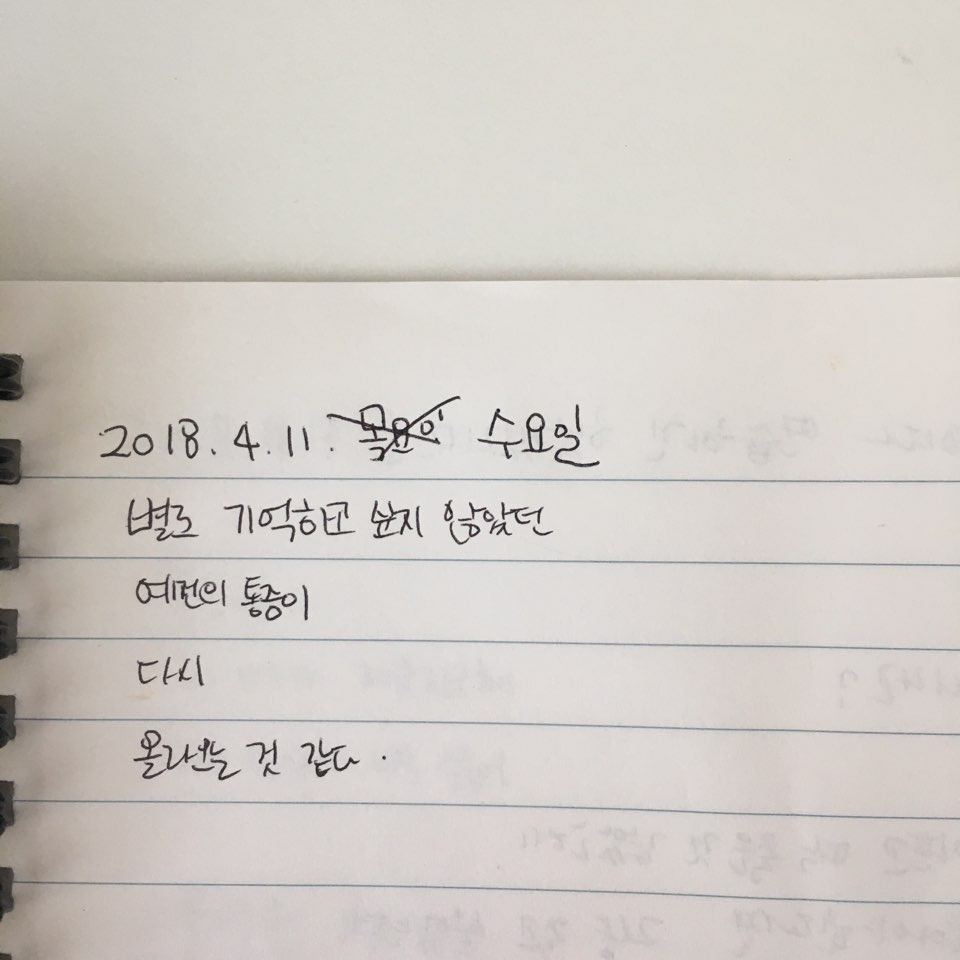 2018. 4. 11. 목요일 수요일
별로 기억하고 싶지 않았던
예전의 통증이
다시
올라오는 것 같다.